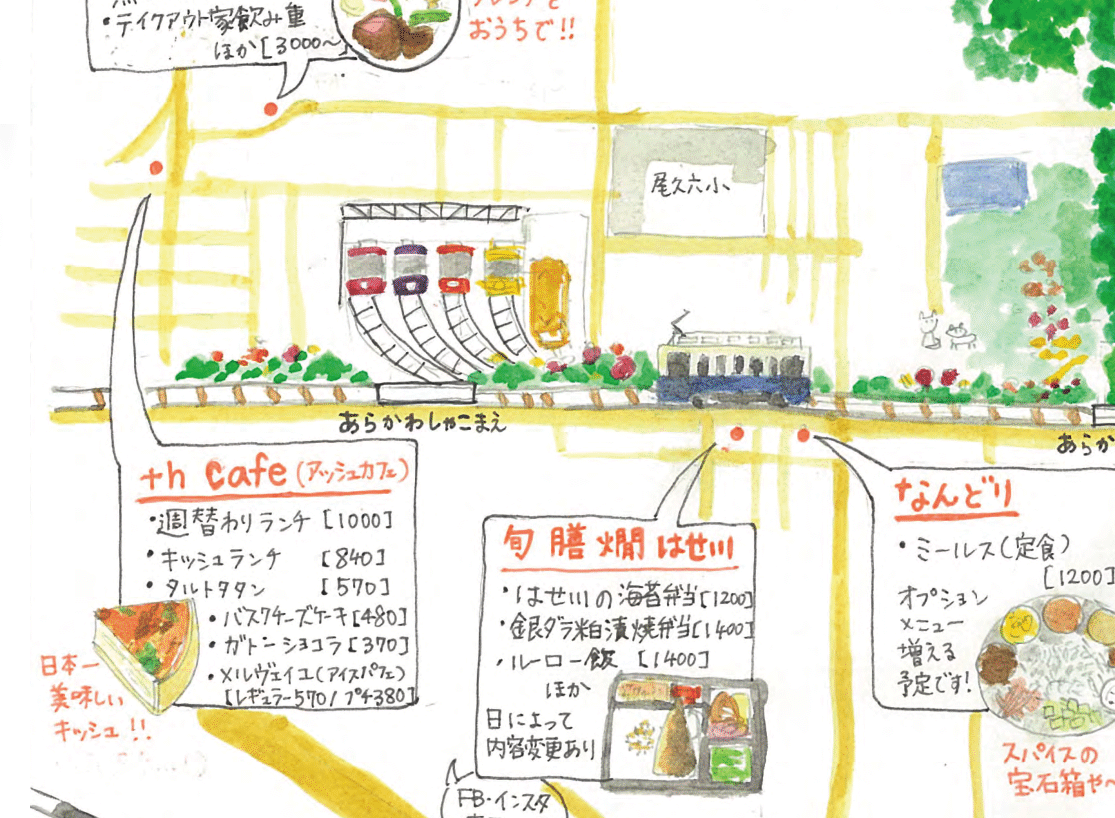 ・テイクアウト家飲み重
ほか[3000〜]
おうちで!!
尾久六小
あらかわしゃこまえ
あらか
+h cafe(アッシュカフェ)
・週替わりランチ[1000]
・キッシュランチ [840]
・タルトタタン [570]
・バスクチーズケーキ[480]
・ガトーショコラ[370]
・メルヴェイユ(アイスパフェ)
[レギュラー570/プチ380]
日本一
美味しい
キッシュ!!
旬膳燗はせ川
・はせ川の海苔弁当[1200]
・銀ダラ粕漬焼弁当[1400]
・ルーロー飯 [1400]
ほか
日によって
内容変更あり
FB・インスタ
なんどり
・ミールス(定食)
[1200]
オプション
メニュー
増える
予定です!
スパイスの
宝石箱や〜